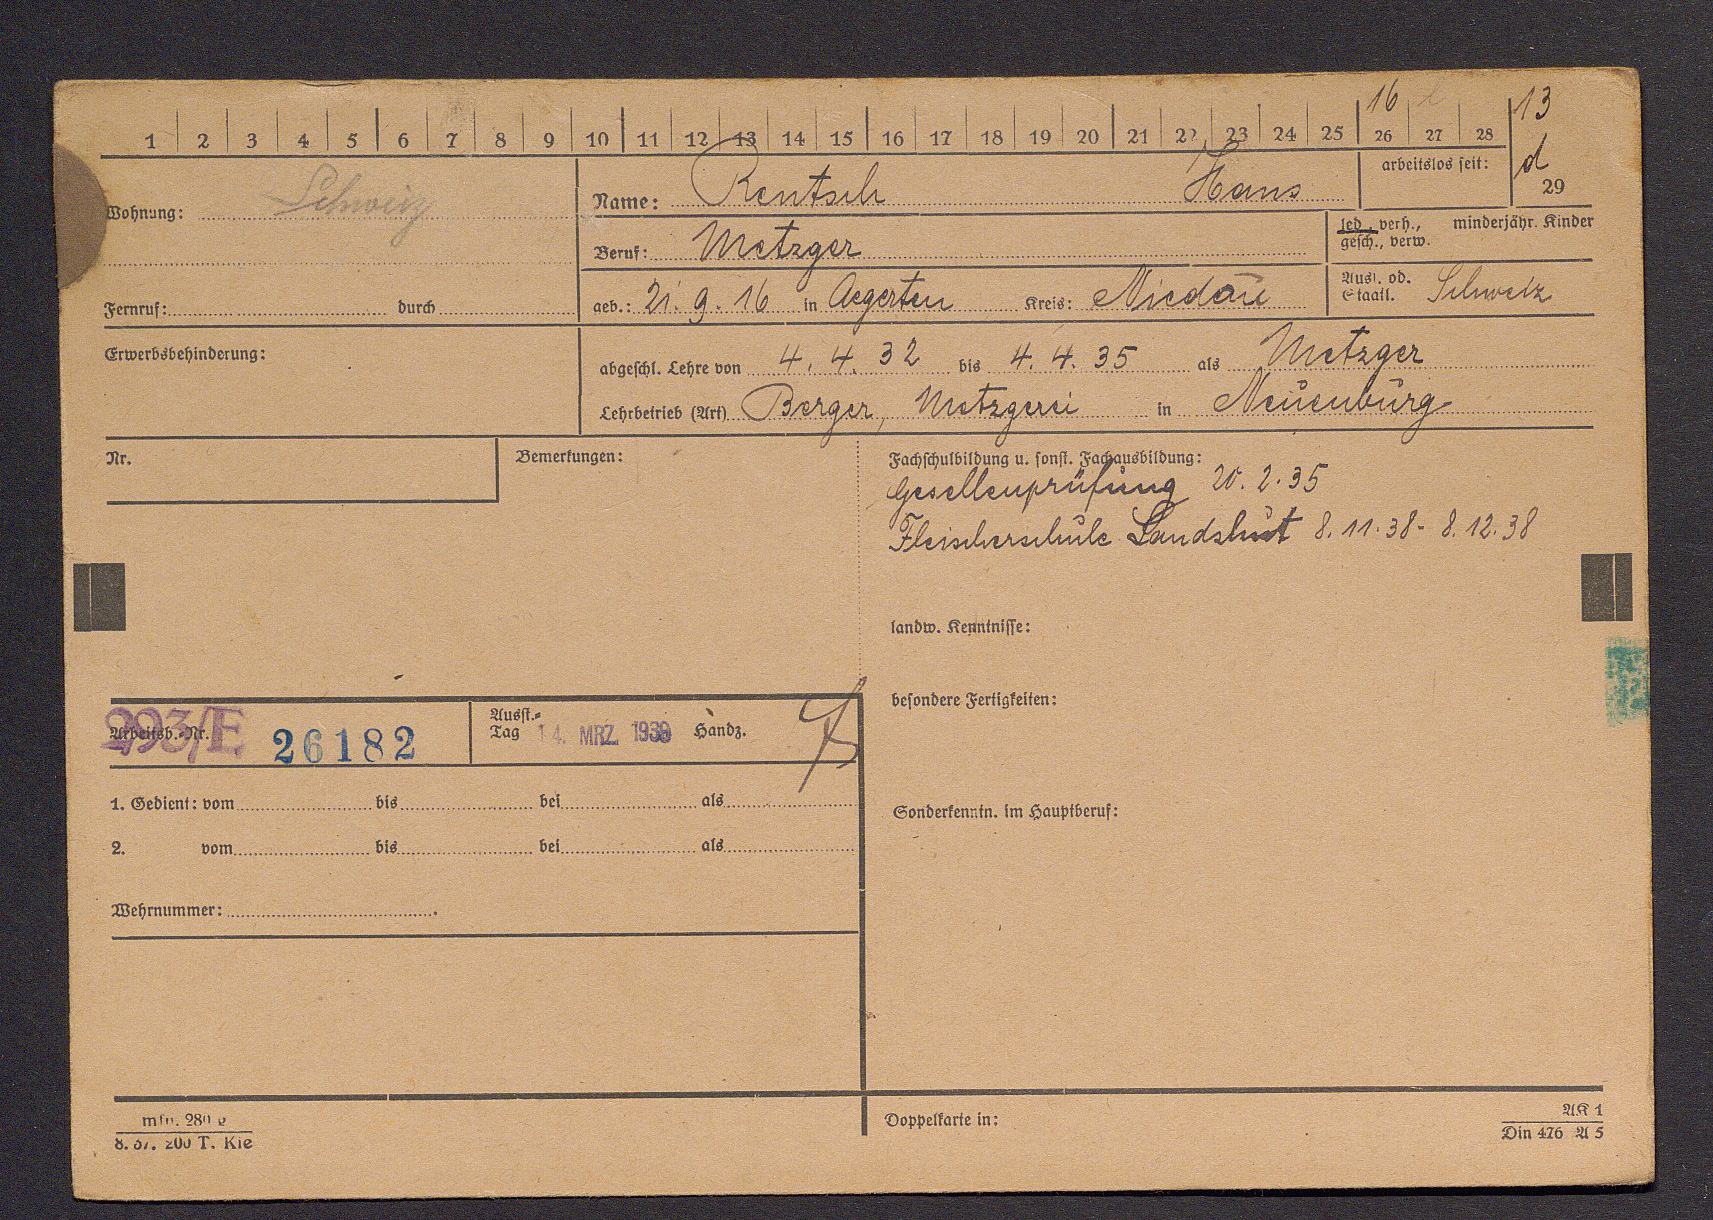 16 13
1 2 3 4 5 6 7 8 9 10 11 12 13 14 15 16 17 18 19 20 21 22 23 24 25 26 27 28
d
29
arbeitslos seit:
Wohnung: Schweiz
Name: Rentsch Hans
Beruf: Metzger
led., verh., minderjähr. Kinder
gesch., verw.
Fernruf: durch
geb.: 21. 9. 16 in Aegerten Kreis: Niedau
Ausl. od.
Staatl. Schweiz
Erwerbsbehinderung:
abgeschl. Lehre von 4. 4. 32 bis 4. 4. 35 als Metzger
Lehrbetrieb (Art) Berger, Metzgerei in Neuenburg
Nr.
Bemerkungen:
Fachschulbildung u. sonst. Fachausbildung:
Gesellenprüfung 20. 2. 35
Fleischerschule Landshut 8. 11. 38 - 8. 12. 38
landw. Kenntnisse:
besondere Fertigkeiten:
Sonderkenntn. im Hauptberuf:
293/E
Arbeitsb.-Nr. 26182
Ausst.-
Tag 14. MRZ. 1939 Handz.
1. Gedient: vom bis bei als
2. vom bis bei als
Wehrnummer:
8. 37. 200 T. Kie
Doppelkarte in:
AK 1
Din 476 A 5